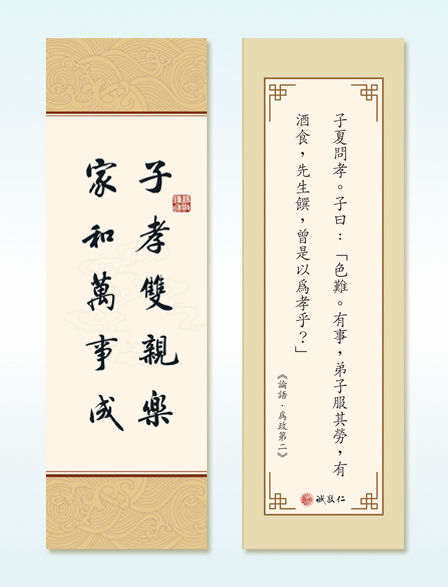 子孝雙親樂
家和萬事成
子夏問孝。子曰：「色難。有事，弟子服其勞，有
酒食，先生饌，曾是以為孝乎？」
《論語．為政第二》
誠敬仁